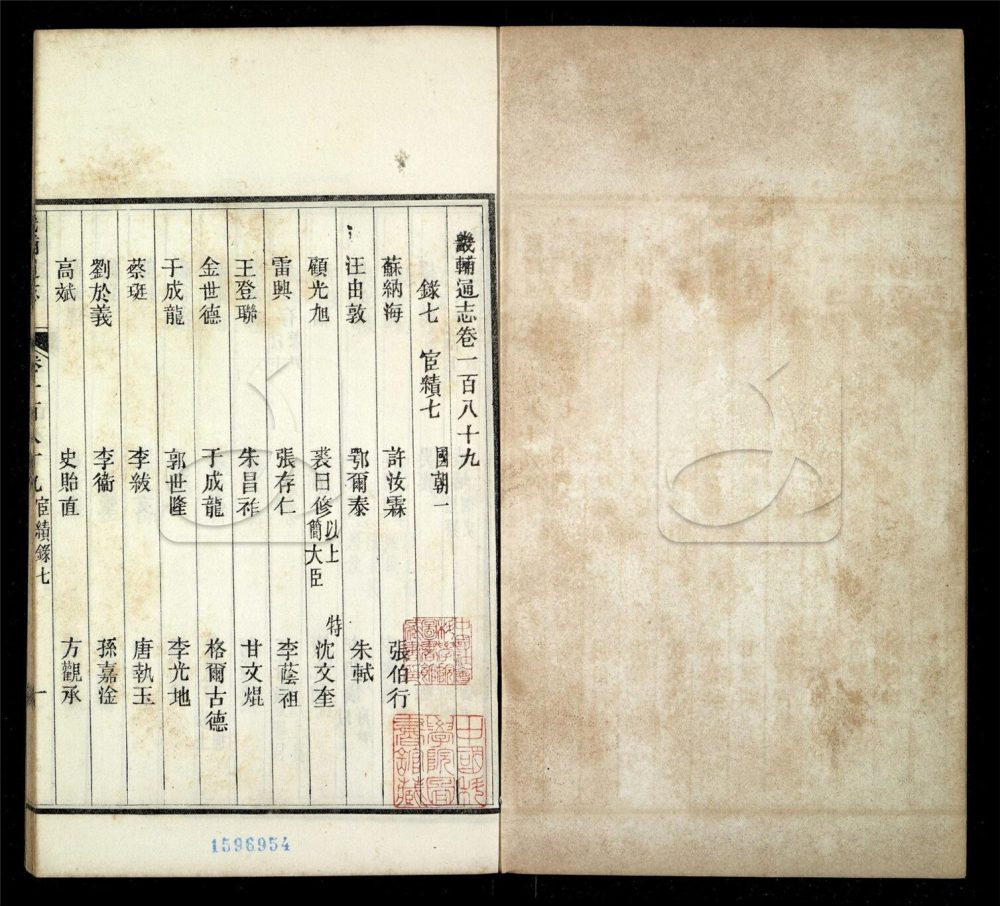 畿輔通志卷一百八十九
錄七 宦績七 國朝一
蘇納海 許汝霖 張伯行
汪由敦 鄂爾泰 朱軾
顧光旭 裘曰修以上特簡大臣 沈文奎
雷興 張存仁 李蔭祖
王登聯 朱昌祚 甘文焜
金世德 于成龍 格爾古德
于成龍 郭世隆 李光地
蔡珽 李紱 唐執玉
劉於義 李衞 孫嘉淦
高斌 史貽直 方觀承
宦績錄七
1596954